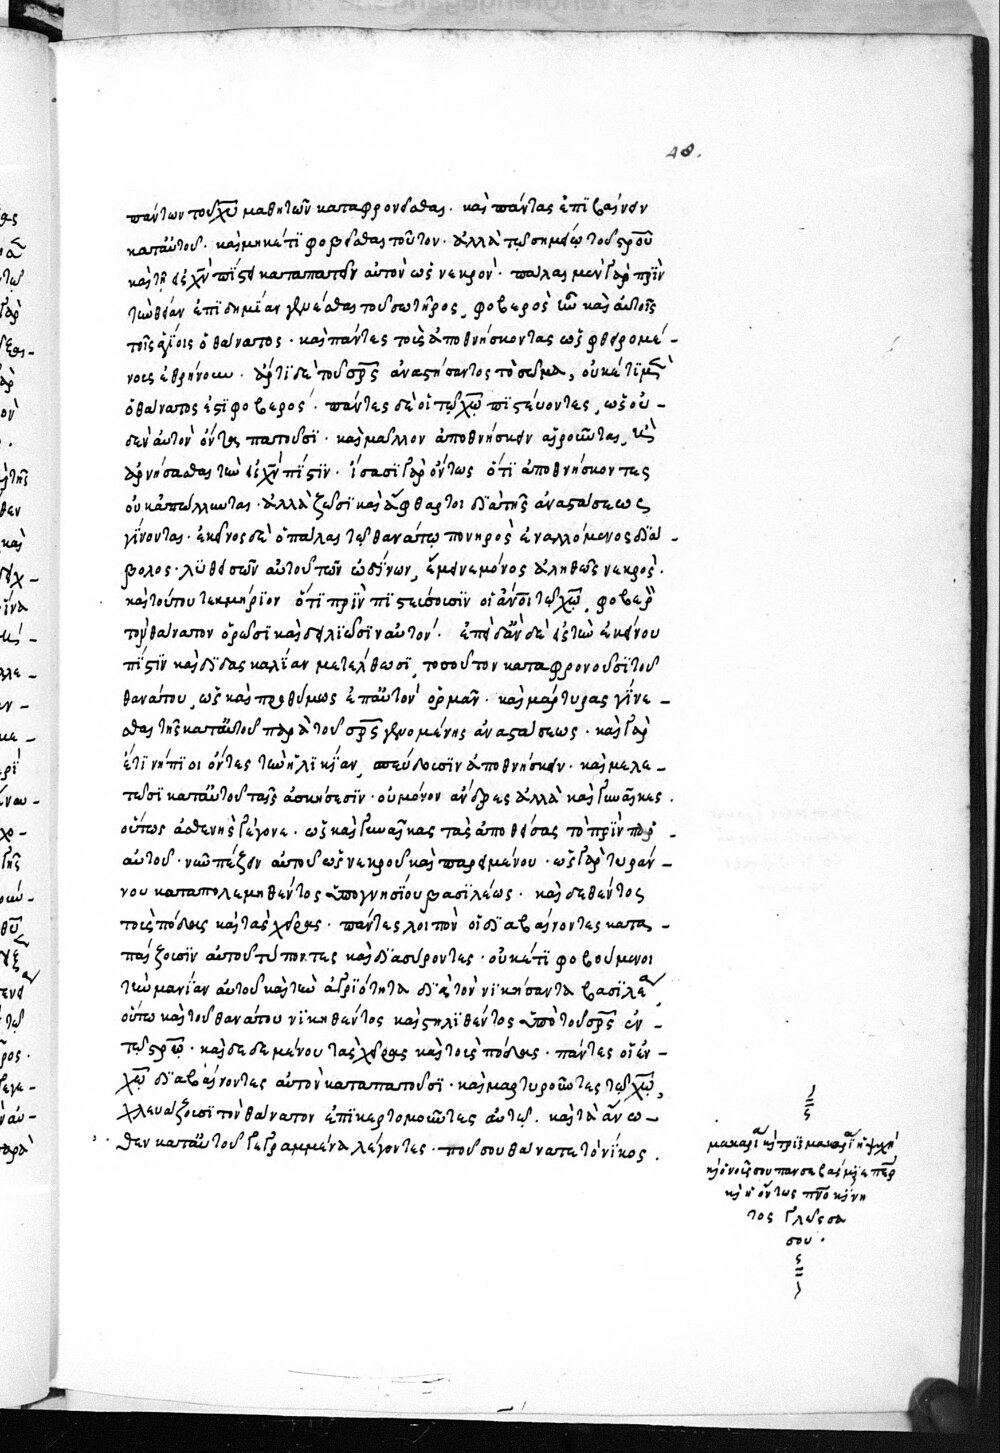 πάντων τοῦ χ̅υ̅ μαθητῶν καταφρονεῖσθαι· καὶ πάντας ἐπϊβαίνειν
κατ' αὐτοῦ· καὶ μηκέτϊ φοβεῖσθαι τοῦτον· ἀλλὰ τῷ σημείῳ τοῦ σ̅ρ̅ο̅υ̅
καὶ τῇ εἰς χ̅ν̅ πίστει καταπατεῖν αὐτὸν ὡς νεκρόν· πάλαι μὲν γὰρ πρὶν
τὴν θείαν ἐπϊδημΐαν γενέσθαι τοῦ σωτῆρος, φοβερὸς ἦν καὶ αὐτοῖς
τοῖς ἁγίοις ὁ θάνατος· καὶ πάντες τοὺς ἀποθνήσκοντας ὡς φθειρομέ-
νους ἐθρήνουν· ἄρτϊ δὲ τοῦ σ̅ρ̅ς̅ ἀναστήσαντος τὸ σῶμα, οὐκέτϊ μὲν
ὁ θάνατος ἐστϊ φοβερός· πάντες δὲ οἱ τῷ χ̅ω̅ πϊστεύοντες, ὡς οὐ-
δὲν αὐτὸν ὄντα πατοῦσϊ· καὶ μᾶλλον ἀποθνήσκειν αἱροῦνται, ἢ
ἀρνήσασθαι τὴν εἰς χ̅ν̅ πίστϊν· ἴσασϊ γὰρ ὄντως ὅτϊ ἀποθνήσκοντες
οὐκ ἀπόλλυνται· ἀλλὰ ζῶσϊ καὶ ἄφθαρτοι δϊὰ τῆς ἀναστάσεως
γίνονται· ἐκεῖνος δὲ ὁ πάλαι τῷ θανάτῳ πονηρὸς ἐναλλόμενος δϊά-
βολος· λϋθεισῶν αὐτοῦ τῶν ὠδίνων, ἔμεινε μόνος ἀληθῶς νεκρός·
καὶ τούτου τεκμήρϊον ὅτϊ πρὶν πϊστεύσουσϊν οἱ ἄ̅ν̅ο̅ι̅ τῷ χ̅ω̅, φοβερὸν
τὸν θάνατον ὁρῶσϊ καὶ δειλϊῶσϊν αὐτόν· ἐπειδὰν δὲ εἰς τὴν ἐκείνου
πίστϊν καὶ δϊδασκαλίαν μετέλθωσϊ, τοσοῦτον καταφρονοῦσϊ τοῦ
θανάτου, ὡς καὶ προθύμως ἐπ' αὐτὸν ὁρμᾶν· καὶ μάρτυρας γίνε-
σθαι τῆς κατ' αὐτοῦ παρὰ τοῦ σ̅ρ̅ς̅ γενομένης ἀναστάσεως· καὶ γὰρ
ἔτϊ νήπϊοι ὄντες τὴν ἡλϊκΐαν, σπεύδουσϊν ἀποθνήσκειν· καὶ μελε-
τῶσϊ κατ' αὐτοῦ ταῖς ἀσκήσεσϊν· οὐ μόνον ἄνδρες ἀλλὰ καὶ γυναῖκες.
οὕτως ἀσθενὴς γέγονε· ὡς καὶ γυναῖκας τὰς ἀπατηθείσας τὸ πρὶν παρ'
αὐτοῦ· νῦν παίζειν αὐτὸν ὡς νεκρὸν καὶ παρειμένον· ὡς γὰρ τυράν-
νου καταπολεμηθέντος ὑπὸ γνησίου βασϊλέως· καὶ δεθέντος
τοὺς πόδας καὶ τὰς χεῖρας· πάντες λοιπὸν οἱ δϊαβαίνοντες κατα-
παίζουσϊν αὐτοῦ τύποντες καὶ δϊασύροντες· οὐκέτϊ φοβούμενοι
τὴν μανίαν αὐτοῦ καὶ τὴν ἀγρϊότητα δϊὰ τὸν νϊκήσαντα βασϊλέα,
οὕτω καὶ τοῦ θανάτου νϊκηθέντος καὶ στηλϊθέντος ὑπὸ τοῦ σ̅ρ̅ς̅ ἐν
τῷ σ̅ρ̅ω̅· καὶ δεδεμένου τὰς χεῖρας καὶ τοὺς πόδας· πάντες οἱ ἐν
χ̅ω̅ δϊαβαίνοντες αὐτὸν καταπατοῦσϊ· καὶ μαρτυροῦντες τῷ χ̅ω̅,
χλευάζουσϊ τὸν θάνατον ἐπϊκερτομοῦντες αὐτῷ· καὶ τὰ ἄνω-
θεν κατ' αὐτοῦ γεγραμμένα λέγοντες· ποῦ σου θάνατε τὸ νῖκος.
μακαρία καὶ τρισμακαρία ἡ ψυχή
καὶ ὁ νοῦς σου πανσεβάσμιε π̅ε̅ρ̅
καὶ ἡ ὄντως π̅ν̅ο̅κίνη
τος γλῶσσα
σου·